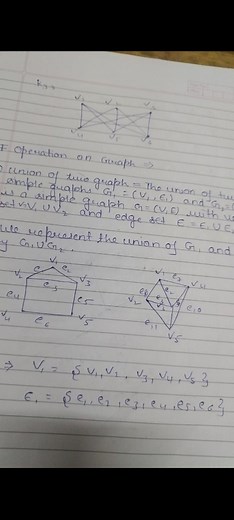 V1 V2 V3
V4 V5 V6
Operation on Graph ⇒
union of two graph = The union of
simple graphs G1 = (V1, E1) and G2 =
is a simple graph G = (V, E) with
set V1 ∪ V2 and edge set E = E1 ∪ E
represent the union of G1 and
by G1 ∪ G2.
V1
e1 e2
V3
e3
e4 e5
V4 e6 V5
V1 e2 V4
V2
e10
e11
V5
⇒ V1 = { V1, V2, V3, V4, V5 }
E1 = { e1, e2, e3, e4, e5, e6 }